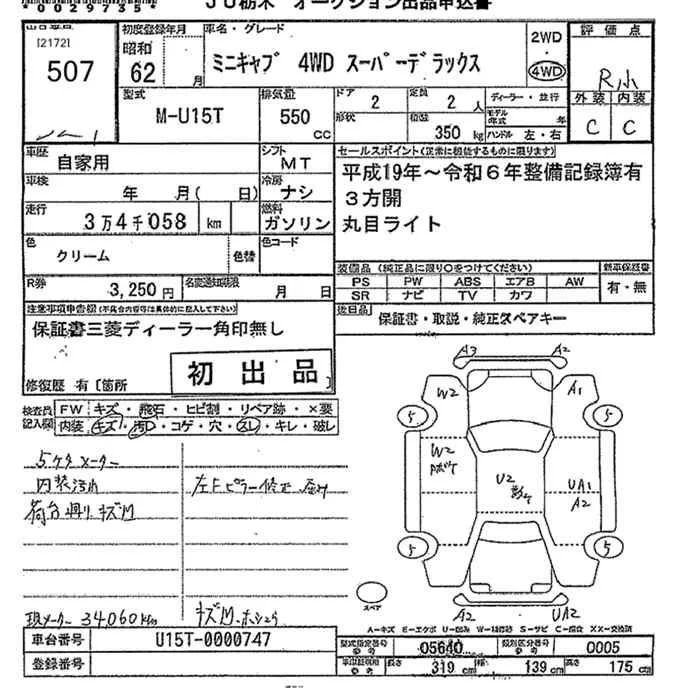 *0029735*
JU栃木 オークション出品申込書
[2172]
507
初度登録年月
昭和
62
月
車名・グレード
ミニキャブ 4WD スーパーデラックス
2WD
・
4WD
評価点
R小
外装 内装
C C
型式
M-U15T
排気量
550
CC
ドア
2
形状
定員
2 人
積載
350 kg
ディーラー・並行
モデル年式 年
ハンドル 左・右
車歴
自家用
シフト
MT
車検
年 月( 日)
冷房
ナシ
走行
3万4千058 km
燃料
ガソリン
色
クリーム
色替
色コード
R券
3,250円
名変通知期限
月 日
セールスポイント(正常に機能するものに限ります)
平成19年〜令和6年整備記録簿有
3方開
丸目ライト
装備品(純正品に限り○をつけてください)
PS PW ABS エアB AW
SR ナビ TV カワ
新車保証書
有・無
後日品
保証書・取説・純正スペアキー
注意事項申告欄(不具合内容等は具体的に記入して下さい)
保証書三菱ディーラー角印無し
初出品
修復歴 有[箇所
検査員記入欄
FW キズ・飛石・ヒビ割・リペア跡・×要
内装 キズ・汚れ・コゲ・穴・スレ・キレ・破レ
5ケタメーター
内装汚れ
左Fピラー修正
荷台周り キズ凹
現メーター 34060km
A3 A2
W2 A1
5 5
W2
U2
UA1
A2
5 5
スペア
A2 UA2
A-キズ E-エクボ U-凹み W-補修跡 S-サビ C-腐食 XX-交換済
車台番号
U15T-0000747
登録番号
型式指定番号 参考
05640
類別区分番号 参考
0005
車両証明用 参考
長さ 319 cm
幅 139 cm
高さ 175 cm